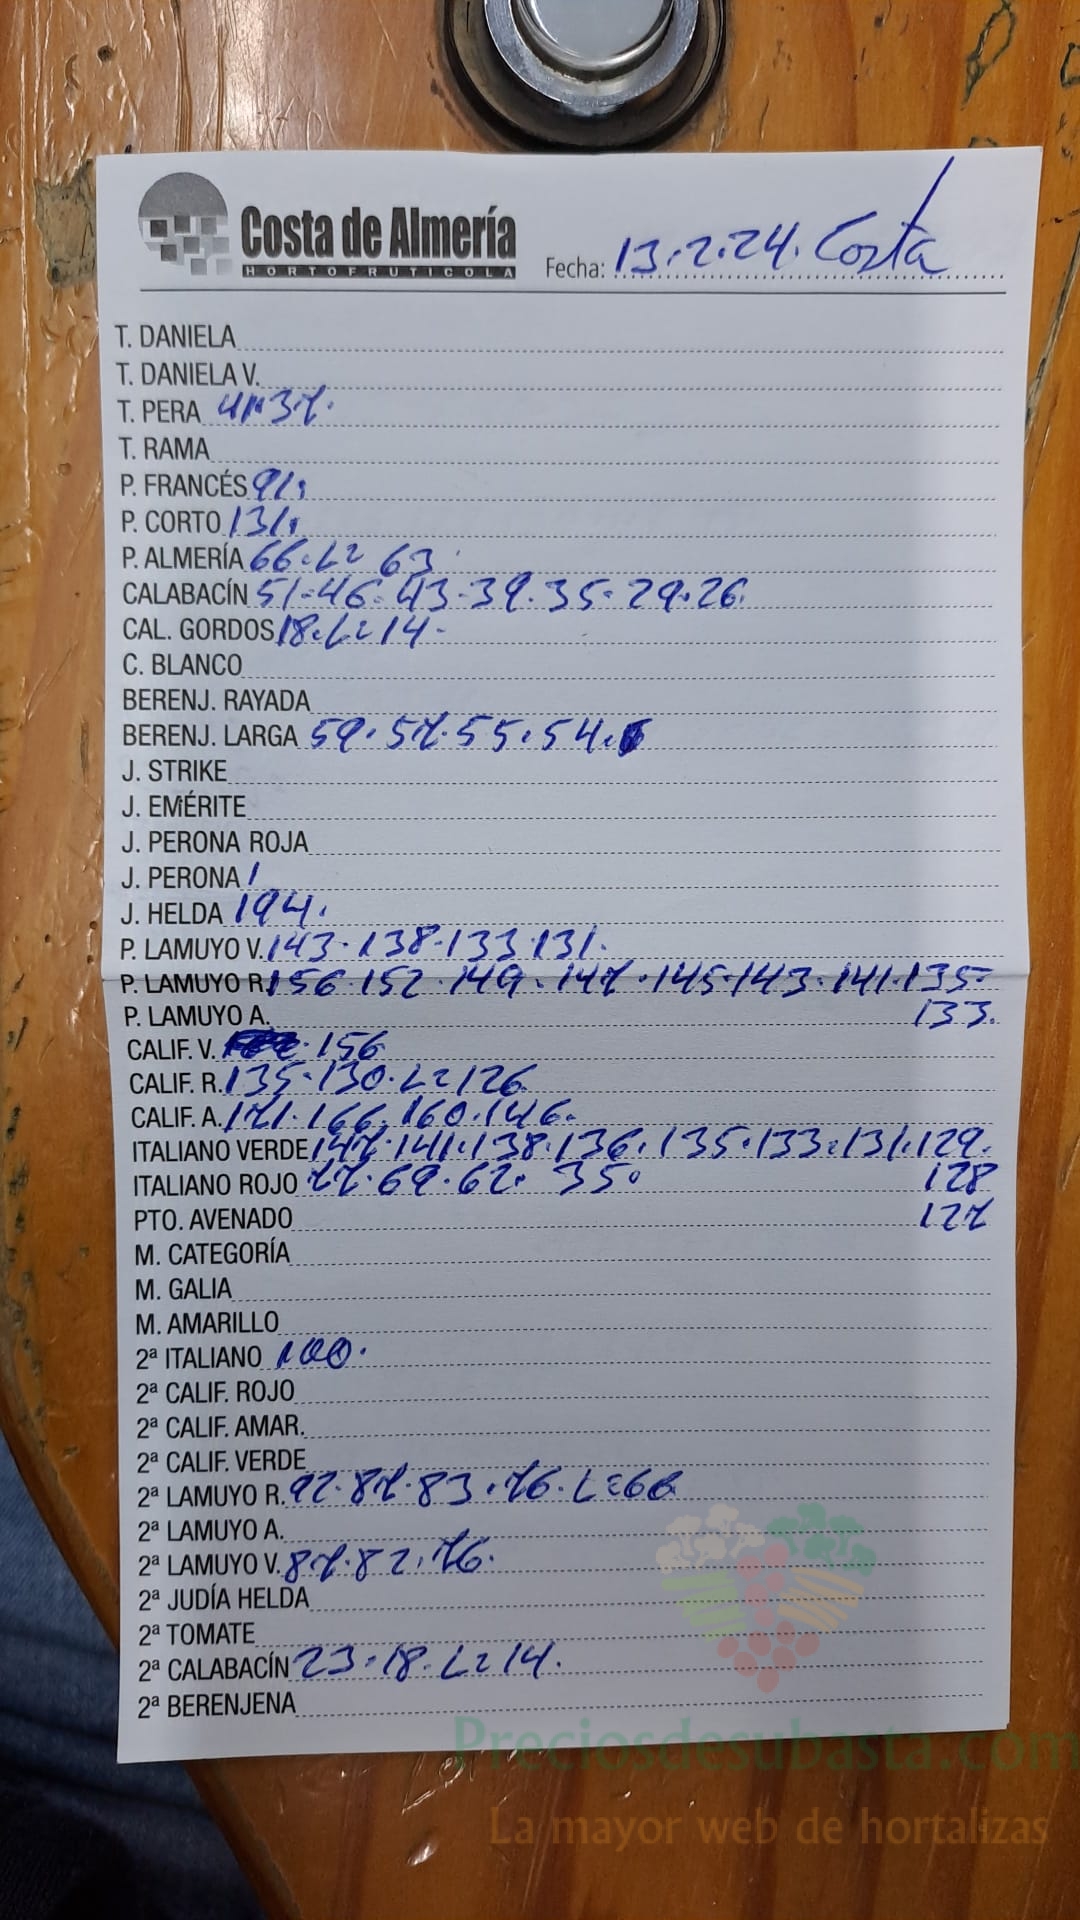 Costa de Almería
HORTOFRUTICOLA
Fecha: 13.2.24. Costa
T. DANIELA
T. DANIELA V.
T. PERA 41·37.
T. RAMA
P. FRANCÉS 91.
P. CORTO 131.
P. ALMERÍA 66.L= 63
CALABACÍN 51-46-43-39.35-29.26.
CAL. GORDOS 18.L=14.
C. BLANCO
BERENJ. RAYADA
BERENJ. LARGA 59.57.55.54.
J. STRIKE
J. EMÉRITE
J. PERONA ROJA
J. PERONA 1
J. HELDA 194.
P. LAMUYO V. 143-138-133-131.
P. LAMUYO R. 156.152.149.147.145-143.141.135-
P. LAMUYO A. 133.
CALIF. V. 156
CALIF. R. 135-130.L=126
CALIF. A. 171.166.160.146.
ITALIANO VERDE 147.141.138.136.135.133.131.129.
ITALIANO ROJO 77.69.62. 35. 128
PTO. AVENADO 127
M. CATEGORÍA
M. GALIA
M. AMARILLO
2ª ITALIANO 100.
2ª CALIF. ROJO
2ª CALIF. AMAR.
2ª CALIF. VERDE
2ª LAMUYO R. 92.87.83.76.L=66
2ª LAMUYO A.
2ª LAMUYO V. 87.82.76.
2ª JUDÍA HELDA
2ª TOMATE
2ª CALABACÍN 23.18.L=14.
2ª BERENJENA
Preciosdesubasta.com
La mayor web de hortalizas